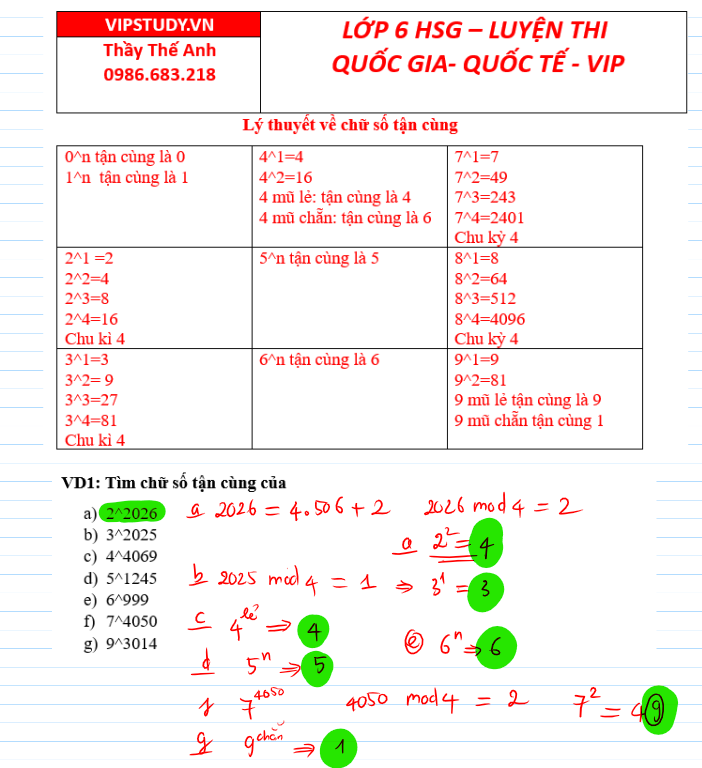 VIPSTUDY.VN
Thầy Thế Anh
0986.683.218
LỚP 6 HSG – LUYỆN THI
QUỐC GIA- QUỐC TẾ - VIP
Lý thuyết về chữ số tận cùng
0^n tận cùng là 0
1^n tận cùng là 1
4^1=4
4^2=16
4 mũ lẻ: tận cùng là 4
4 mũ chẵn: tận cùng là 6
7^1=7
7^2=49
7^3=243
7^4=2401
Chu kỳ 4
2^1 =2
2^2=4
2^3=8
2^4=16
Chu kì 4
5^n tận cùng là 5
8^1=8
8^2=64
8^3=512
8^4=4096
Chu kỳ 4
3^1=3
3^2= 9
3^3=27
3^4=81
Chu kì 4
6^n tận cùng là 6
9^1=9
9^2=81
9 mũ lẻ tận cùng là 9
9 mũ chẵn tận cùng 1
VD1: Tìm chữ số tận cùng của
a) 2^2026
b) 3^2025
c) 4^4069
d) 5^1245
e) 6^999
f) 7^4050
g) 9^3014
a 2026 = 4.506 + 2 2026 mod 4 = 2
a 2² = 4
b 2025 mod 4 = 1 ⇒ 3¹ = 3
c 4^lẻ ⇒ 4
e 6ⁿ ⇒ 6
d 5ⁿ ⇒ 5
f 7^4050 4050 mod 4 = 2 7² = 49
g 9^chẵn ⇒ 1